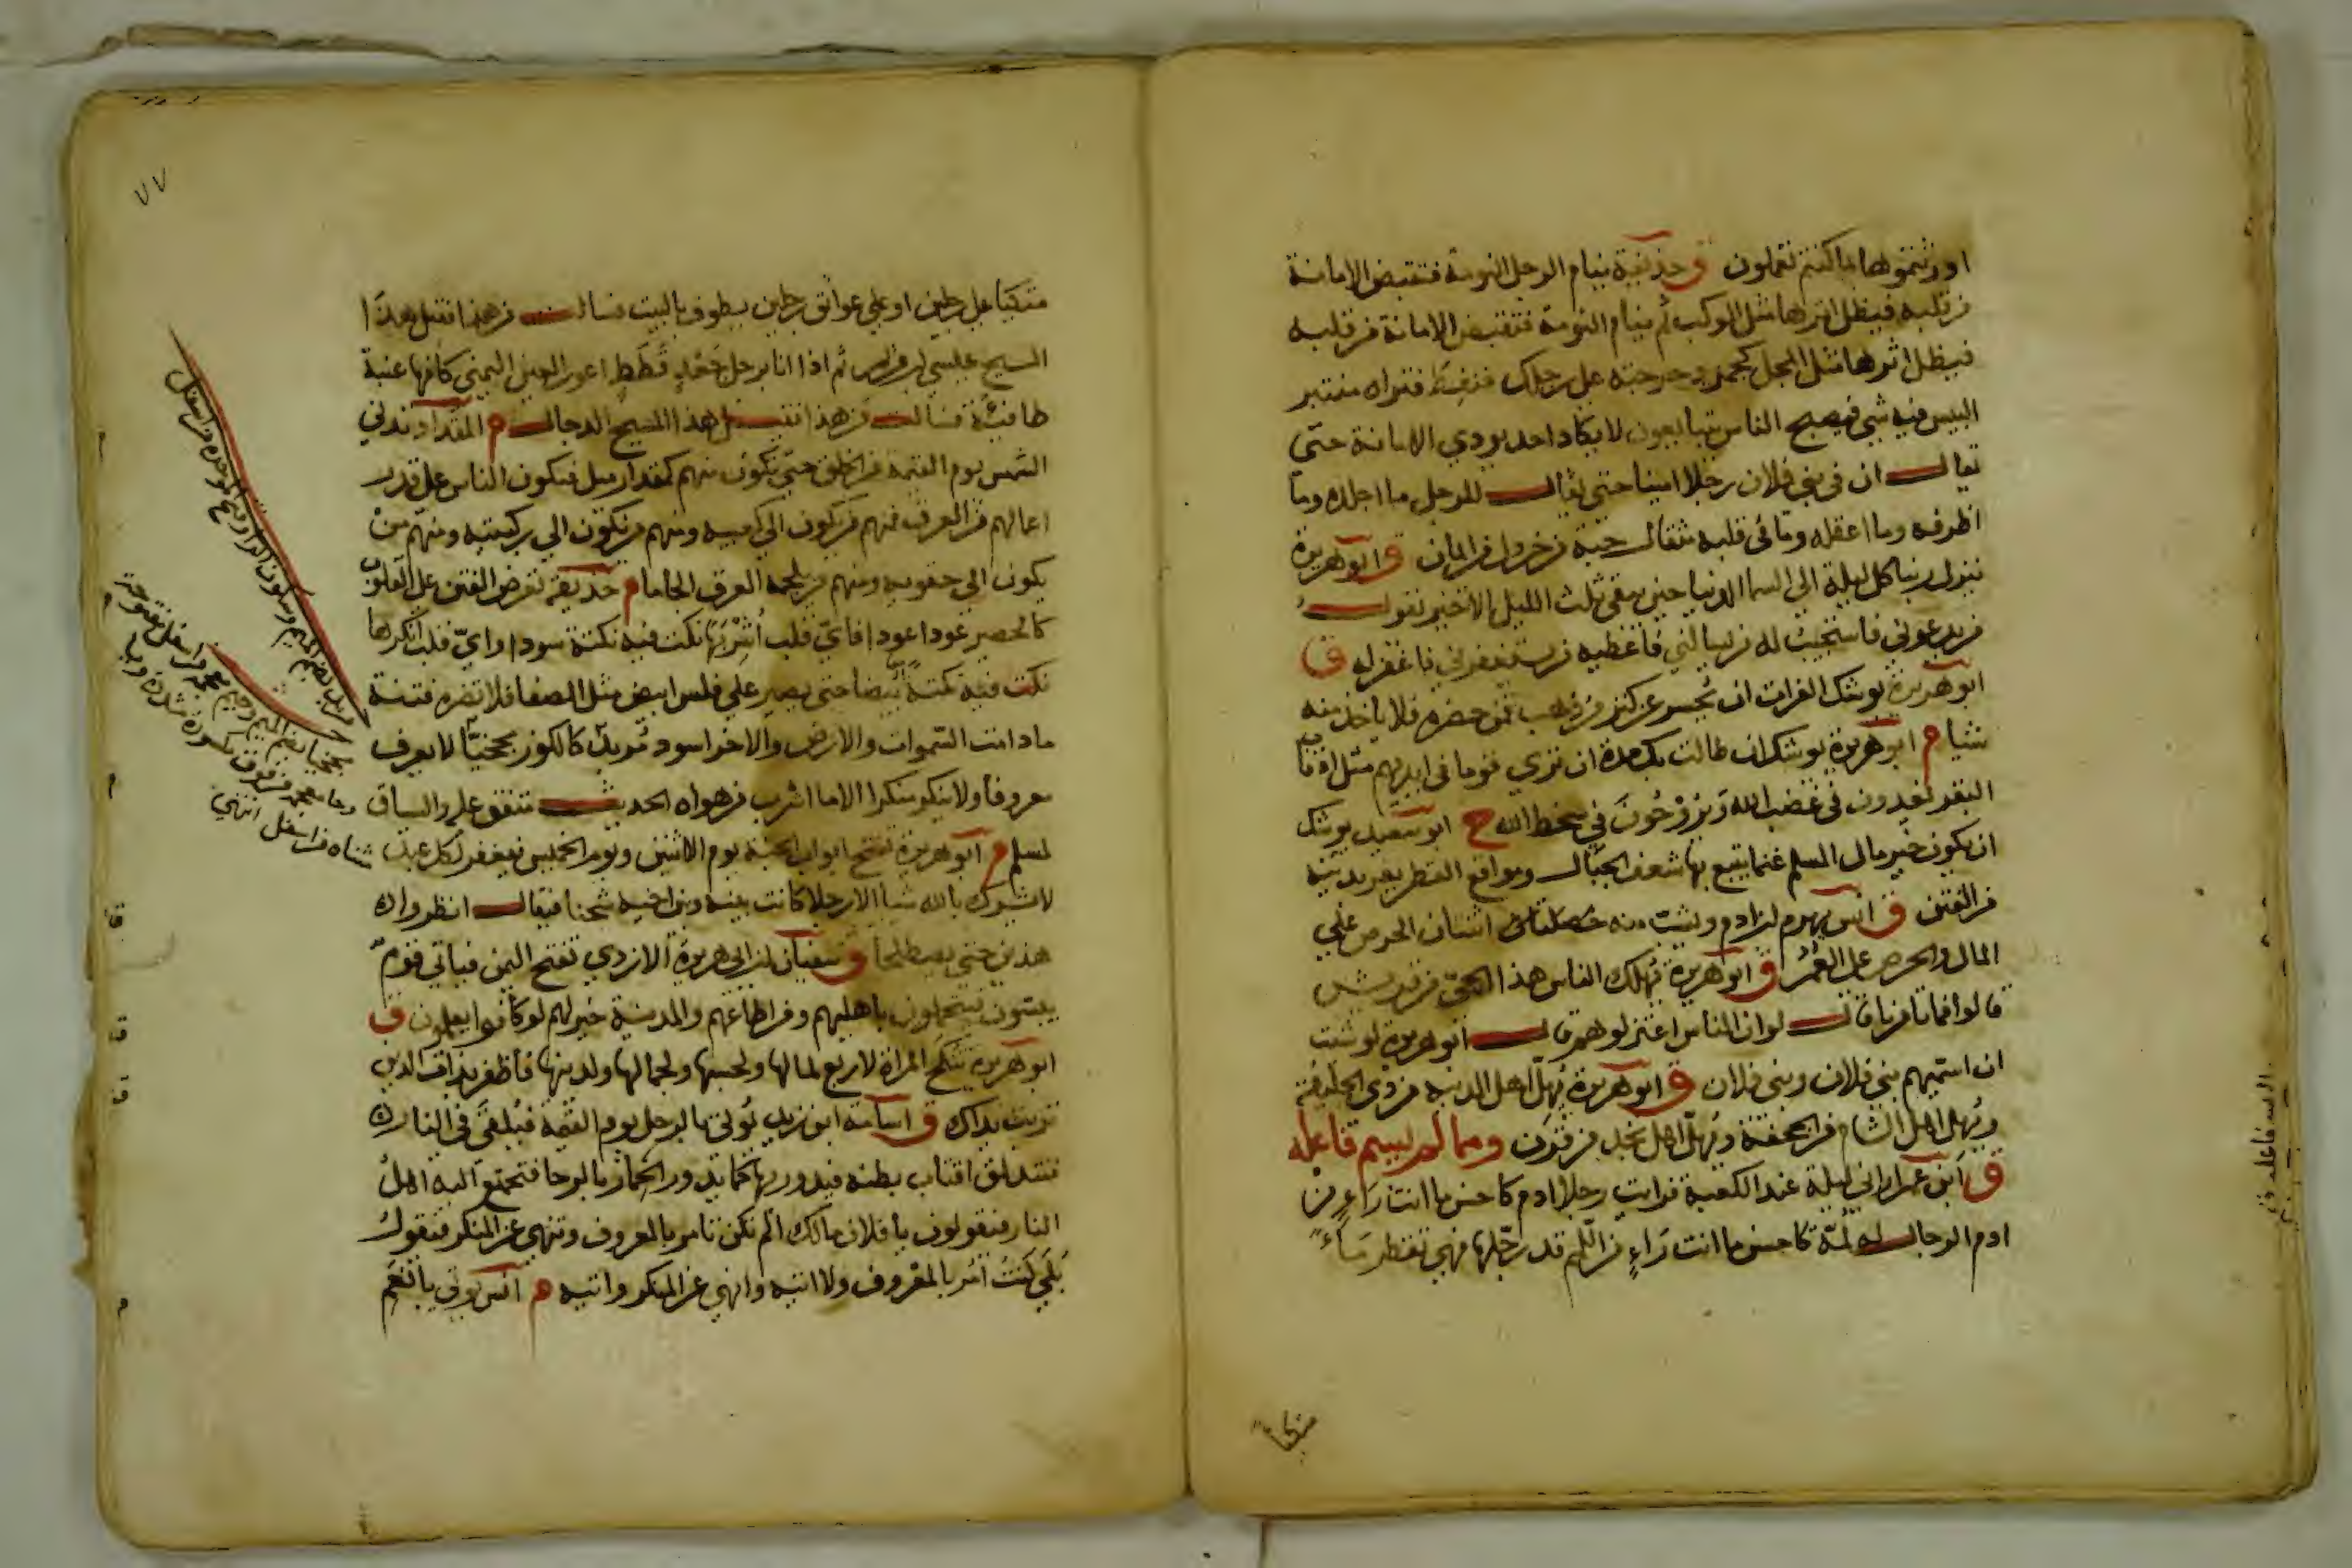 اورثتموها بما كنتم تعملون ق حذيفة ينام الرجل النومة فتقبض الامانة
من قلبه فيظل اثرها مثل الوكت ثم ينام النومة فتقبض الامانة من قلبه
فيظل اثرها مثل المجل كجمر دحرجته على رجلك فنفط فتراه منتبر
اليس فيه شي فيصبح الناس يتبايعون لا يكاد احد يودي الامانة حتى
يقال ان في بني فلان رجلا امينا حتى يقال للرجل ما اجلده وما
اظرفه وما اعقله وما في قلبه مثقال حبة من خردل من ايمان ق ابو هريرة
ينزل ربنا كل ليلة الى السما الدنيا حين يبقى ثلث الليل الاخير يقول
من يدعوني فاستجيب له من يسالني فاعطيه من يستغفرني فاغفر له ق
ابو هريرة يوشك الفرات ان يحسر عن كنز من ذهب فمن حضره فلا ياخذ منه
شيا م ابو هريرة يوشك ان طالت بك مدة ان تري قوما في ايديهم مثل اذناب
البقر يغدون في غضب الله ويروحون في سخط الله خ ابو سعيد يوشك
ان يكون خير مال المسلم غنما يتبع بها شعف الجبال ومواقع القطر يفر بدينه
من الفتن ق انس يهرم ابن ادم ويشب منه خصلتان اثنتان الحرص على
المال والحرص على العمر ق ابو هريرة يهلك الناس هذا الحي من قريش
قالوا فما تامرنا قال لو ان الناس اعتزلوهم قال ابو هريرة لو شئت
ان اسميهم بني فلان وبني فلان ق ابو هريرة يهل اهل المدينة من ذي الحليفة
ويهل اهل الشام من الجحفة ويهل اهل نجد من قرن ومما لم يسم فاعله
ق ابن عمر اراني ليلة عند الكعبة فرايت رجلا ادم كاحسن ما انت راء من
ادم الرجال له لمة كاحسن ما انت راء من اللمم قد رجلها فهي تقطر ماء
متكيا
٧٧
متكيا على رجلين او على عواتق رجلين يطوف بالبيت فسالت من هذا فقيل هذا
المسيح عيسى بن مريم ثم اذا انا برجل جعد قطط اعور العين اليمنى كانها عنبة
طافئة فسالت من هذا فقيل هذا المسيح الدجال م المقداد تدني
الشمس يوم القيمة من الخلق حتى تكون منهم كمقدار ميل فيكون الناس على قدر
اعمالهم من العرق فمنهم من يكون الى كعبيه ومنهم من يكون الى ركبتيه ومنهم من
يكون الى حقويه ومنهم من يلجمه العرق الجاما م حذيفة تعرض الفتن على القلوب
كالحصير عودا عودا فاي قلب اشربها نكت فيه نكتة سودا واي قلب انكرها
نكت فيه نكتة بيضا حتى يصير على قلبين ابيض مثل الصفا فلا تضره فتنة
ما دامت السموات والارض والاخر اسود مربد كالكوز مجخيا لا يعرف
معروفا ولا ينكر منكرا الا ما اشرب من هواه الحديث متفق عليه والسياق
لمسلم م ابو هريرة تفتح ابواب الجنة يوم الاثنين ويوم الخميس فيغفر لكل عبد
لا يشرك بالله شيا الا رجلا كانت بينه وبين اخيه شحنا فيقال انظروا
هذين حتى يصطلحا ق سفيان بن ابي هريرة الازدي تفتح اليمن فياتي قوم
يبسون فيتحملون باهليهم ومن اطاعهم والمدينة خير لهم لو كانوا يعلمون ق
ابو هريرة تنكح المراة لاربع لمالها ولحسبها ولجمالها ولدينها فاظفر بذات الدين
تربت يداك ق اسامة ابن زيد يوتى بالرجل يوم القيمة فيلقى في النار
فتندلق اقتاب بطنه فيدور بها كما يدور الحمار بالرحا فتجتمع اليه اهل
النار فيقولون يا فلان مالك الم تكن تامر بالمعروف وتنهى عن المنكر فيقول
بلى كنت امر بالمعروف ولا اتيه وانهى عن المنكر واتيه م انس يوتى بانعم
مربد بضم الميم وسكون الرا وفتح موحدة من اسفل
مجخيا بضم الميم وجيم من اسفل مفتوحة
وخا معجمة من فوق مكسورة مشددة ويا
مثناه من اسفل انتهى